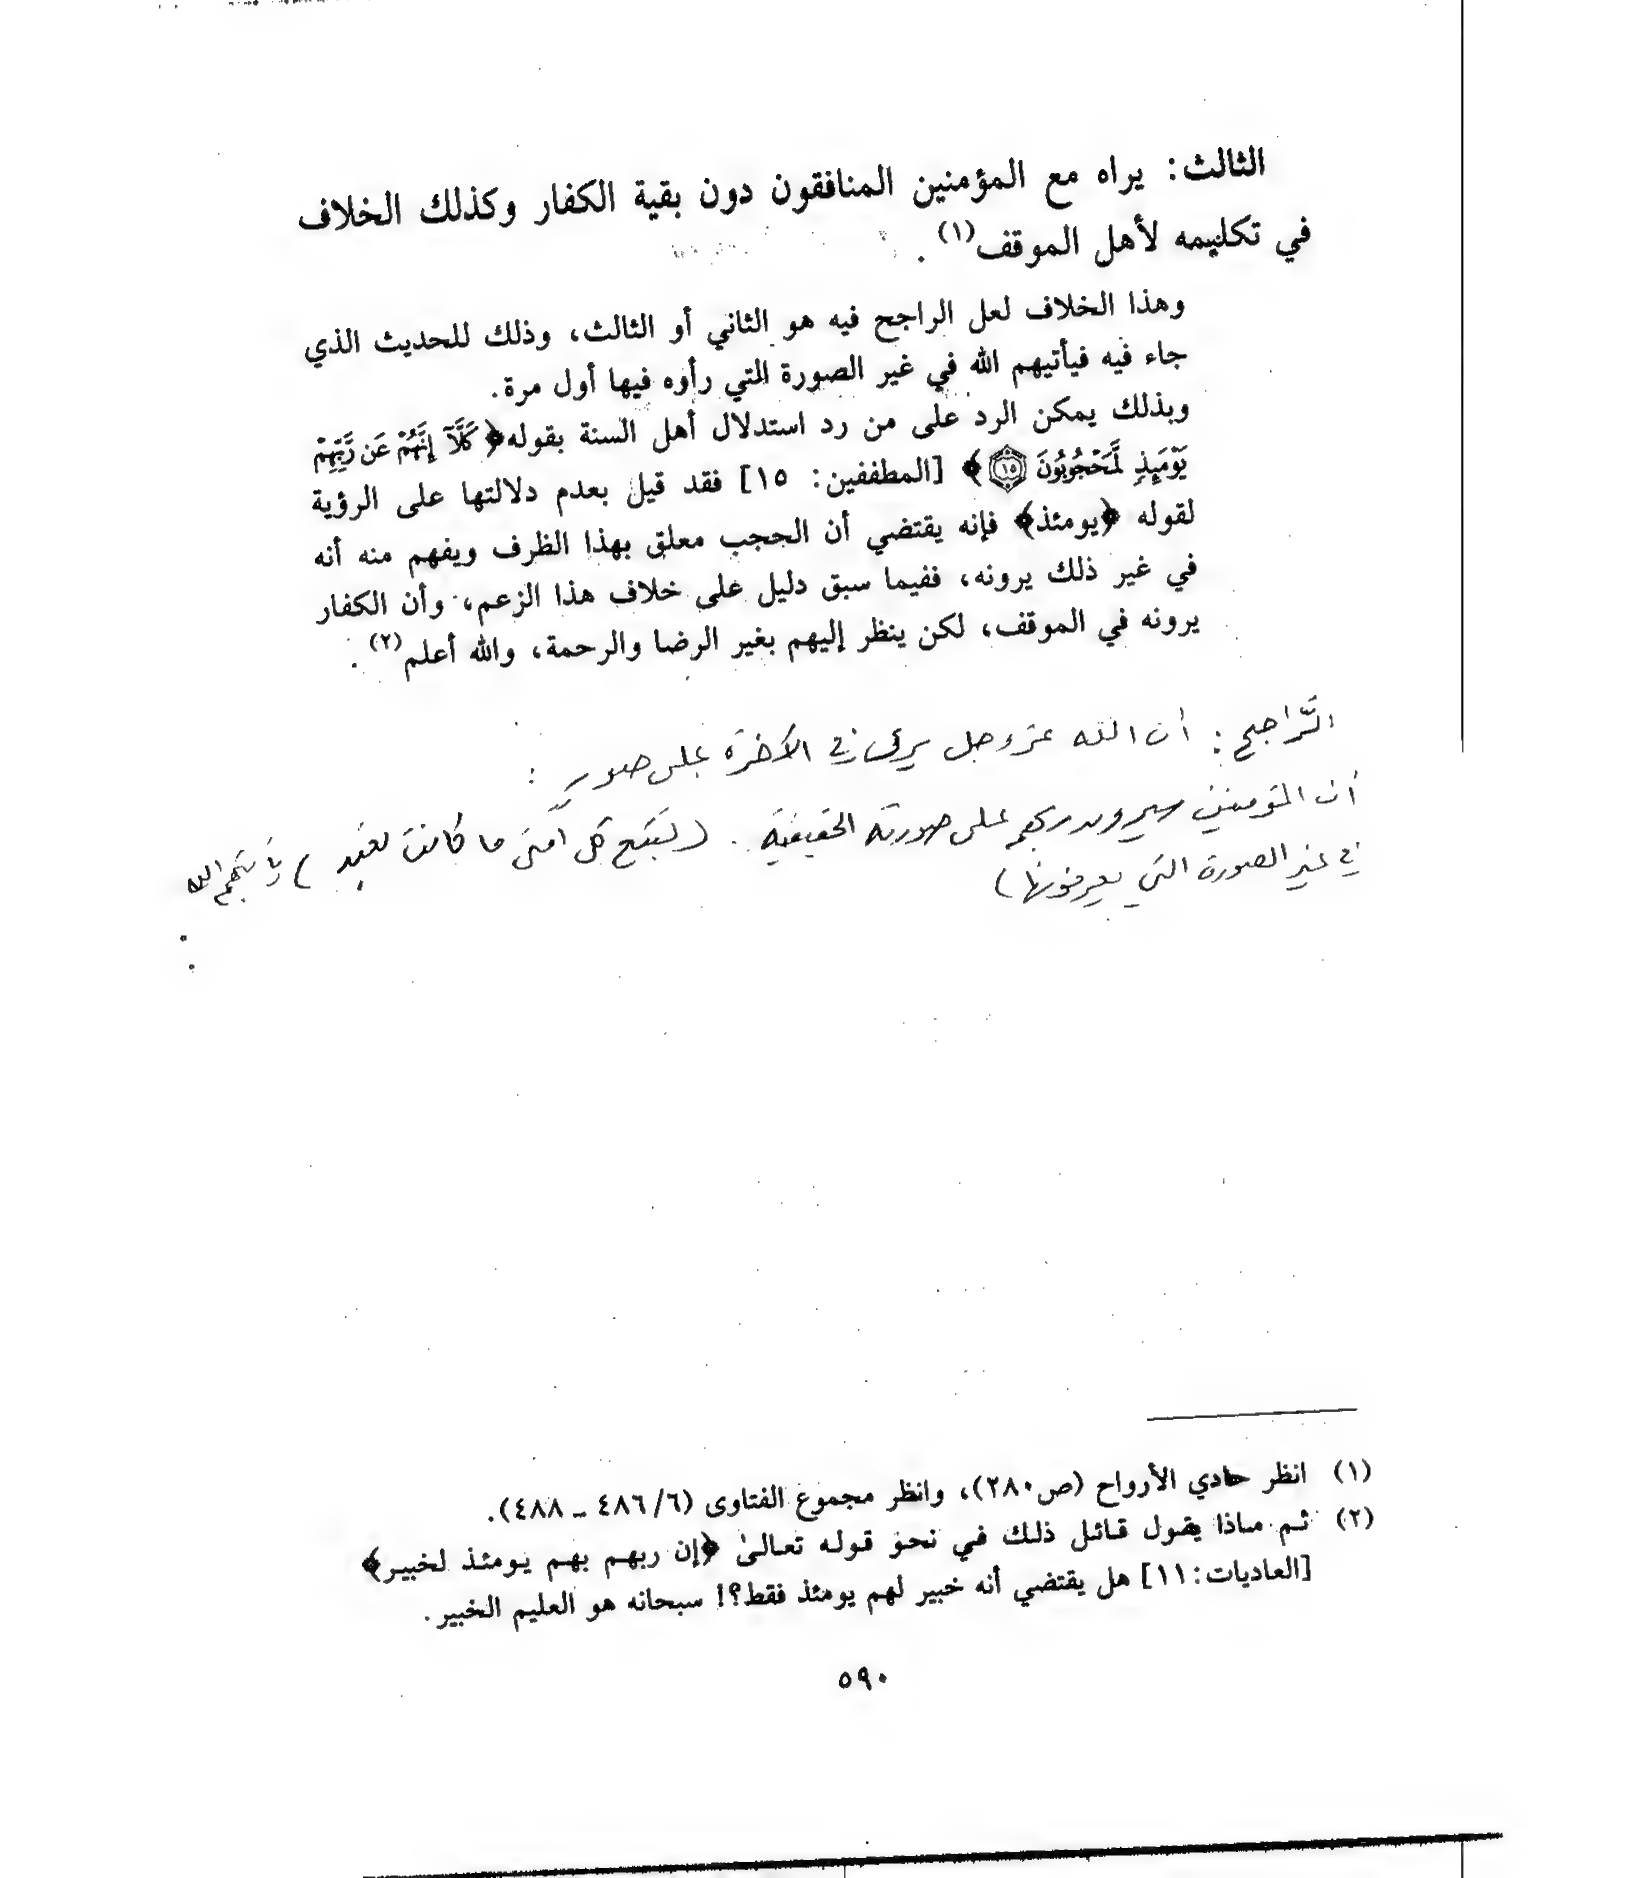 الثالث: يراه مع المؤمنين المنافقون دون بقية الكفار وكذلك الخلاف
في تكليمه لأهل الموقف(١).
وهذا الخلاف لعل الراجح فيه هو الثاني أو الثالث، وذلك للحديث الذي
جاء فيه فيأتيهم الله في غير الصورة التي رأوه فيها أول مرة.
وبذلك يمكن الرد على من رد استدلال أهل السنة بقوله ﴿كَلَّآ إِنَّهُمْ عَن رَّبِّهِمْ
يَوْمَئِذٍ لَّمَحْجُوبُونَ ١٥﴾ [المطففين: ١٥] فقد قيل بعدم دلالتها على الرؤية
لقوله ﴿يومئذ﴾ فإنه يقتضي أن الحجب معلق بهذا الظرف ويفهم منه أنه
في غير ذلك يرونه، ففيما سبق دليل على خلاف هذا الزعم، وأن الكفار
يرونه في الموقف، لكن ينظر إليهم بغير الرضا والرحمة، والله أعلم(٢).
الرَّاجح: أن الله عز وجل يرى في الآخرة على صورٍ:
أن المؤمنين سيرون ربهم على صورته الحقيقية. (لتتبع كل أمة ما كانت تعبد) يأتيهم الله
في غير الصورة التي يعرفونها)
(١) انظر حادي الأرواح (ص٢٨٠)، وانظر مجموع الفتاوى (٤٨٦/٦ - ٤٨٨).
(٢) ثم ماذا يقول قائل ذلك في نحو قوله تعالىٰ ﴿إن ربهم بهم يومئذ لخبير﴾
[العاديات:١١] هل يقتضي أنه خبير لهم يومئذ فقط؟! سبحانه هو العليم الخبير.
٥٩٠